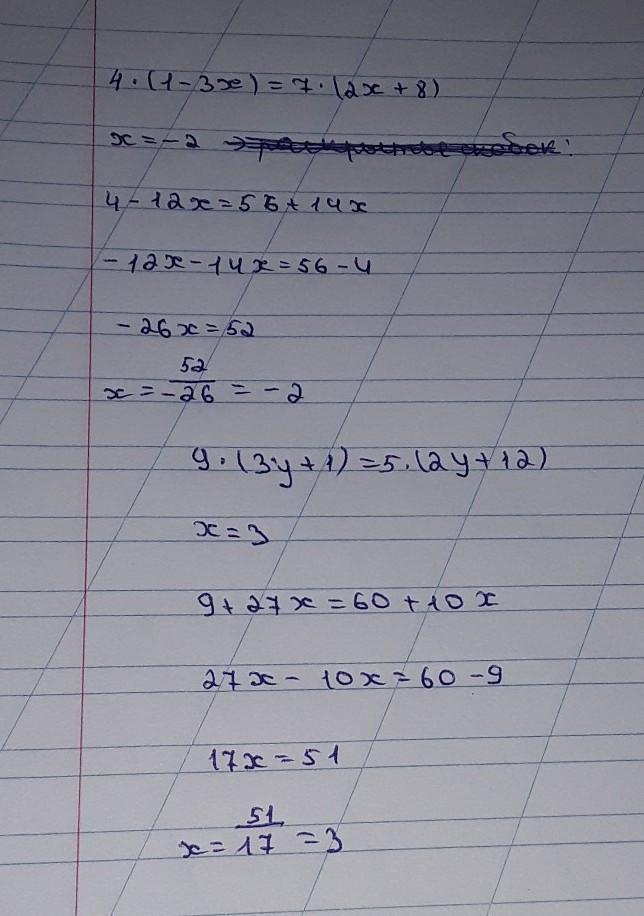 4·(1-3x)=7·(2x+8)
x=-2 → раскрытие скобок:
4-12x=56+14x
-12x-14x=56-4
-26x=52
x=52/-26=-2
9·(3y+1)=5·(2y+12)
x=3
9+27x=60+10x
27x-10x=60-9
17x=51
x=51/17=3